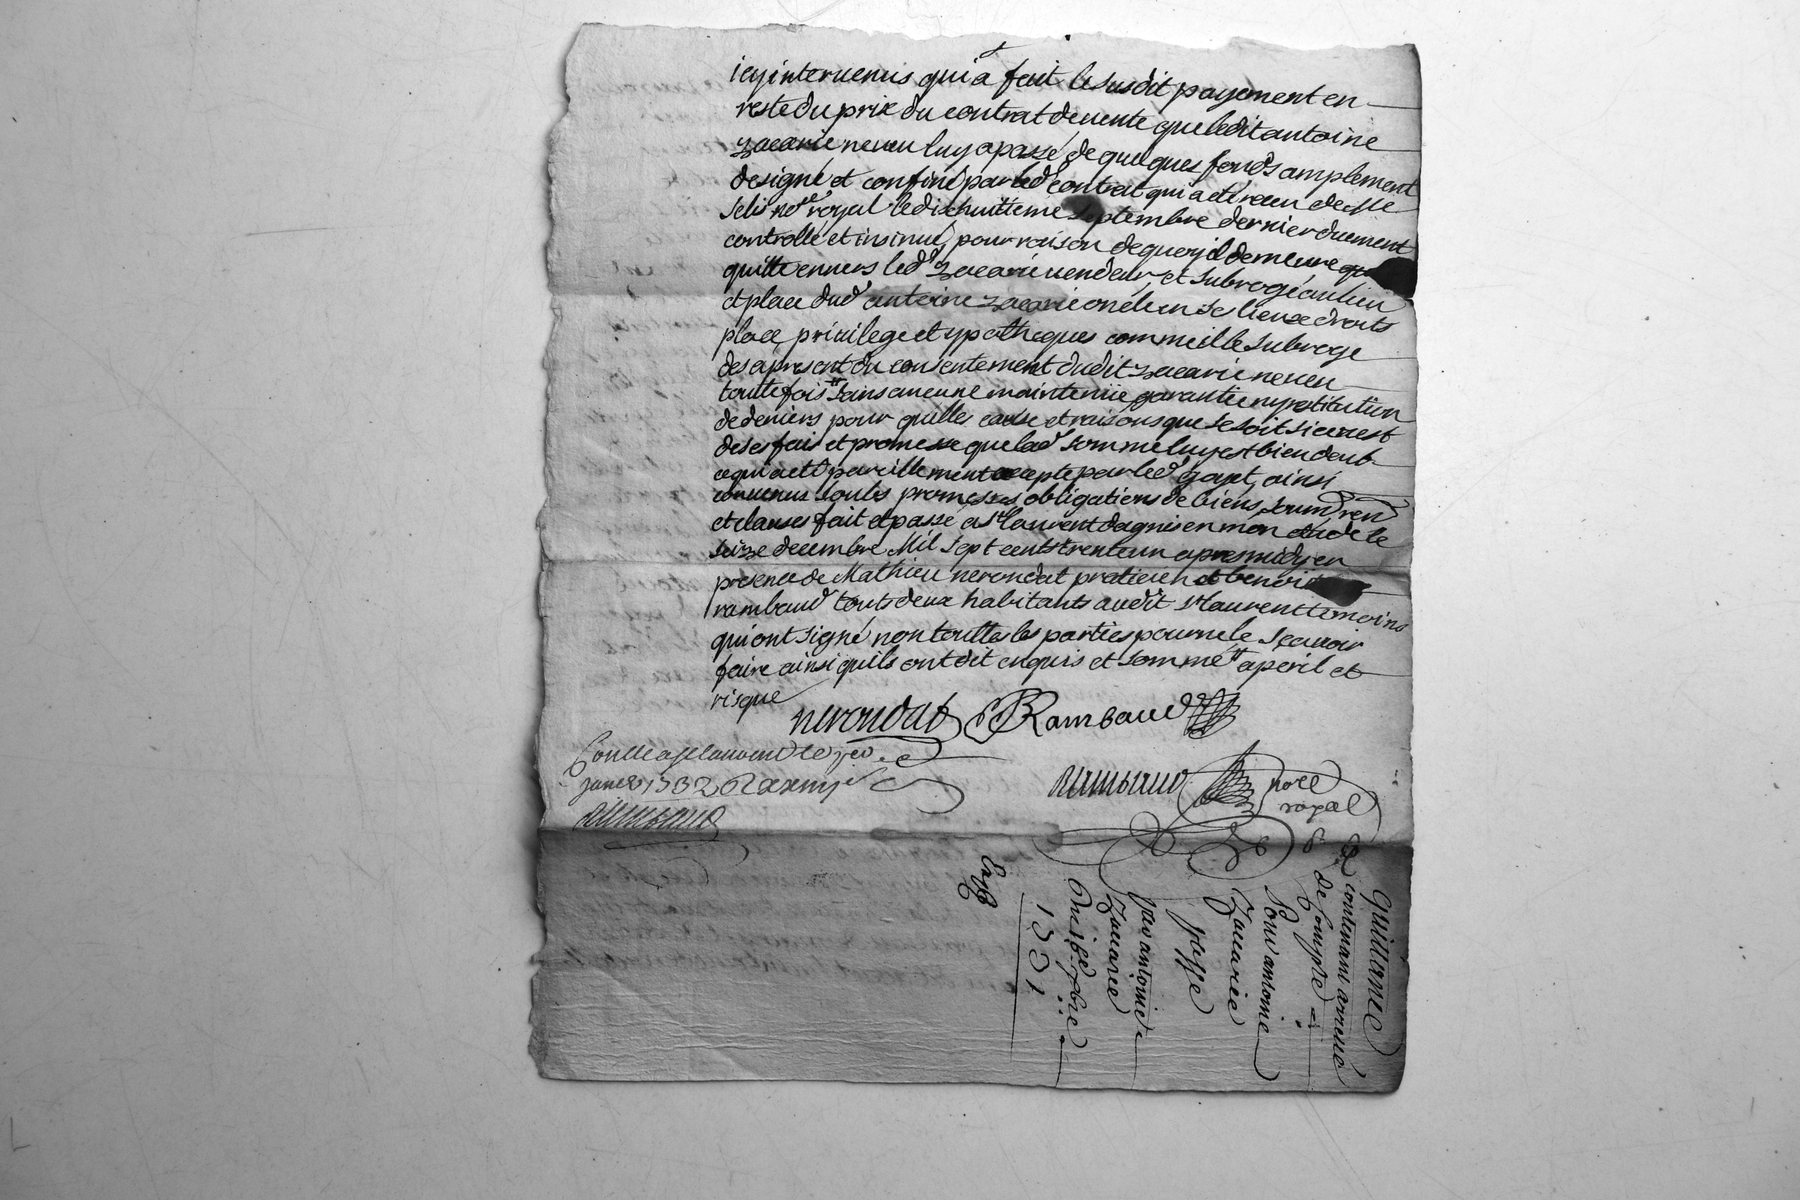 icy intervenus qui a fait le susdit payement en
reste du prix du contrat de vente que ledit antoine
zacarie neveu luy a passé de quelques fonds amplement
designé et confiné par led contrat qui a eté receu de Me
Selis nore royal le dixhuitieme septembre dernier duement
controllé et insinué, pour raison de quoy il demeure
quitte envers led zacarie vendeur et subrogé au lieu
et place dud antoine zacarie oncle en ses lieux droits
place privilege et ypotheques comme il le subroge
des apresent du consentement dudit zacarie neveu
touttefois sans aucune maintenüe garantie ny restitution
de deniers pour quelles cause et raisons que se soit si ce nest
de ses fait et promesse que lad somme luy est bien deub
ce qui a eté pareillement accepté par led gayet, ainsi
convenus soubs promesses obligations de biens soum ren
et clauses fait et passé a St laurent dagnis en mon etude le
seize decembre Mil sept cents trente un apres midy en
presence de Mathieu nerondat praticien et benoi
rambaud touts deux habitants audit St laurent temoins
qui ont signé non touttes les parties pour ne le sçavoir
faire ainsi quils ont dit enquis et sommé a peril et
risque
nerondat B Rambaud
Conlle a St laurent le
janer 1732 R
Rambaud
Rambaud nore
royal
quittance
contenant arreté
de compte
Pour antoine
Zacarie
passé
par antoine
Zacarie
du 16e xbre
1731
Expé